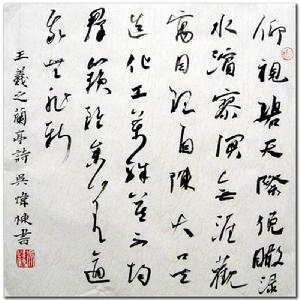 仰視碧天際俯瞰淥
水濱寥無涯觀
寓目理自陳大矣
造化工萬殊莫不均
群籟雖參差適
我無非新
王羲之蘭亭詩 吳煒書